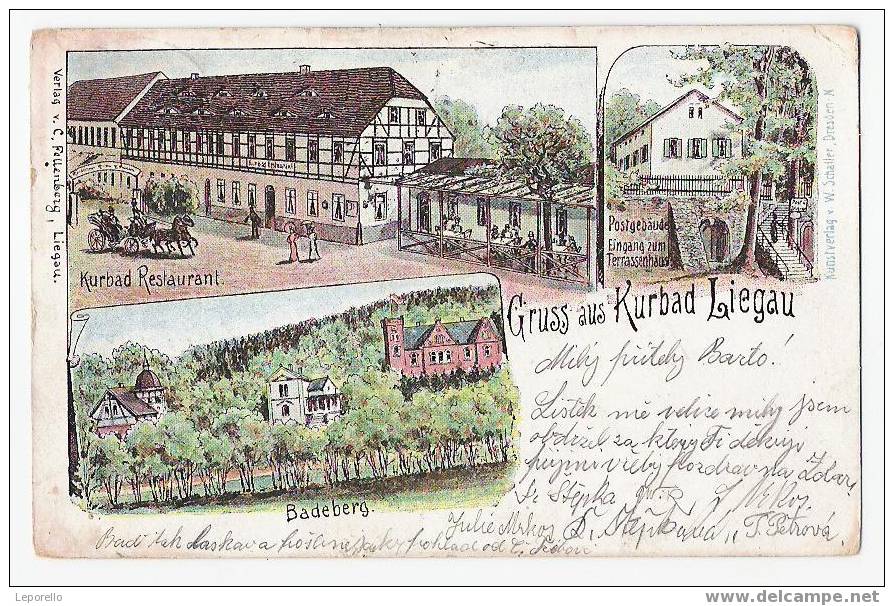 Verlag v. C. Pillenberg, Liegau.
Kurbad Restaurant
Kurbad Restaurant.
Postgebäude
Eingang zum
Terrassenhaus
Kunstverlag v. W. Schaller, Dresden-N
Gruss aus Kurbad Liegau
Badeberg.
Milý příteli Barto!
Lístek mě velice milý jsem
obdržel za který Ti děkuji
přijmi vřelý pozdrav na Zdar!
Štěpka
Julie
T. Petrová
Badí tak laskav a
pohled od
Leporello
www.delcampe.net